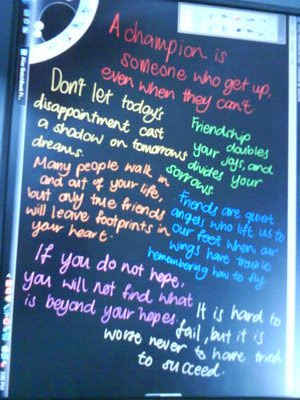 A champion is
someone who get up,
even when they can't
Don't let today's
disappointment cast
a shadow on tomorrows
dreams.
Friendship
doubles
your joys, and
divides your
sorrows.
Many people walk in
and out of your life,
but only true friends
will leave footprints in
your heart.
Friends are quiet
angels who lift us to
our feet when our
wings have trouble
remembering how to fly
If you do not hope,
you will not find what
is beyond your hopes.
It is hard to
fail, but it is
worse never to have tried
to succeed.